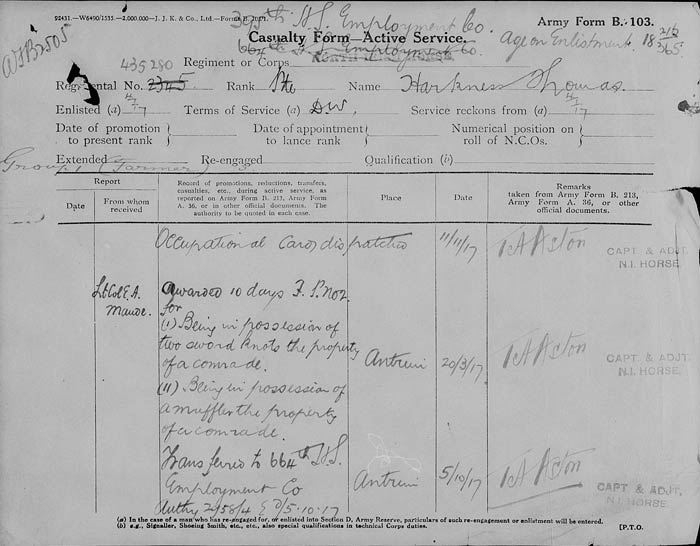 92431.—W6490/1535.—2,000,000—J. J. K. & Co., Ltd.—Forms B. 103/1.
395th H.S. Employment Co.
Army Form B. 103.
Casualty Form—Active Service.
664th H.S. Employment Co.
Age on Enlistment. 18 216/365.
435280
Regiment or Corps
Regimental No. 2345 Rank Pte Name Harkness Thomas.
Enlisted (a) 4/7/17 Terms of Service (a) D.W. Service reckons from (a) 4/7/17
Date of promotion to present rank
Date of appointment to lance rank
Numerical position on roll of N.C.Os.
Extended Re-engaged Qualification (b)
Group 1 (Farmer)
Report
Date
From whom received
Record of promotions, reductions, transfers, casualties, etc., during active service, as reported on Army Form B. 213, Army Form A. 36, or in other official documents. The authority to be quoted in each case.
Place
Date
Remarks
taken from Army Form B. 213, Army Form A. 36, or other official documents.
Occupational Card dispatched 11/11/17 TA Aston
CAPT & ADJT.
N.I. HORSE.
Lt Col E.A. Maude.
Awarded 10 days F.P. No 2.
for
(1) Being in possession of
two sword knots the property
of a comrade. Antrim 20/3/17 TA Aston
CAPT. & ADJT.
N.I. HORSE.
(11) Being in possession of
a muffler the property
of a comrade.
Transferred to 664th H.S.
Employment Co Antrim 5/10/17 TA Aston
CAPT & ADJT.
N.I. HORSE.
(a) In the case of a man who has re-engaged for, or enlisted into Section D, Army Reserve, particulars of such re-engagement or enlistment will be entered.
(b) e.g., Signaller, Shoeing Smith, etc., etc., also special qualifications in technical Corps duties.
[P.T.O.